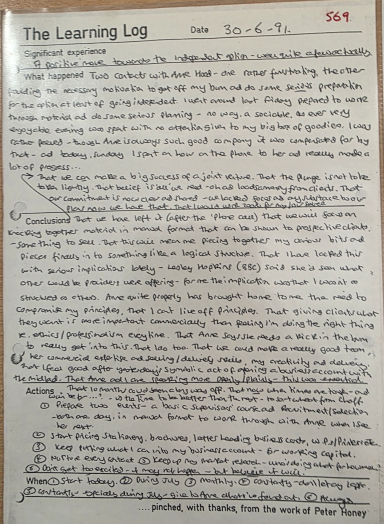 569.
The Learning Log
Date 30-6-91.
Significant experience
A positive move towards the Independent option - were quite a few actually
What happened Two contacts with Anne Hood - one rather frustrating, the other
providing the necessary motivation to get off my bum and do some serious preparation
for the option at least of going independent. I went around last Friday prepared to work
through material and do some serious planning - no way, a sociable, as ever very
enjoyable evening was spent with no attention given to my big box of goodies. I was
rather peeved - though Anne is always such good company it was compensated for by
that - and today, Sunday I spent an hour on the phone to her and really made a
lot of progress...
That we can make a big success of a joint venture. That the plunge is not to be
taken lightly. That belief is all we need - on and loads money from clients. That
our commitment is now clear and shared - we lacked focus
now we have that. That I would work
Conclusions That we have left it (after the 'phone call) that we will focus on
knocking together material in manual format that can be shown to prospective clients
- something to sell. That this will mean me piecing together my various bits and
pieces finally into something like a logical structure. That I have lacked this
with serious implications lately - Lesley Hopkins (BBC) said she'd seen what
other would be providers were offering - for me the implication was that I wasn't as
structured as others. Anne quite properly has brought home to me the need to
compromise my principles, that I can't live off principles. That giving clients what
they want is more important commercially than feeling I'm doing the right thing
re. ethics/professionalism every time. That Anne says she needs a kick in the bum
to really get into this. That I was too. That we could make a really good team,
her commercial expertise and selling/delivery skills, my creativity and delivery.
That I feel good after yesterday's symbolic act of opening a business account with
the Midland. That Anne and I are
Actions That 10 months could seem a long way off. That now what time we took - and
① Prepare two events - a basic supervisors' course and Recruitment/Selection
- both one day, in manual format to work through with Anne when I see
her next
② Start pricing stationery, brochures, letter heading business cards, W.P.s/Printers etc.
③ Keep putting what I can into my business account - for working capital.
④ Positive every contact ⑤ Keep up my market related
⑥ Don't get too excited - it may not happen - but believe it will
When ① Start today. ② During July ③ monthly. ④ constantly - daily
⑤ constantly - especially during July - give to Anne ⑥ Always
....pinched, with thanks, from the work of Peter Honey